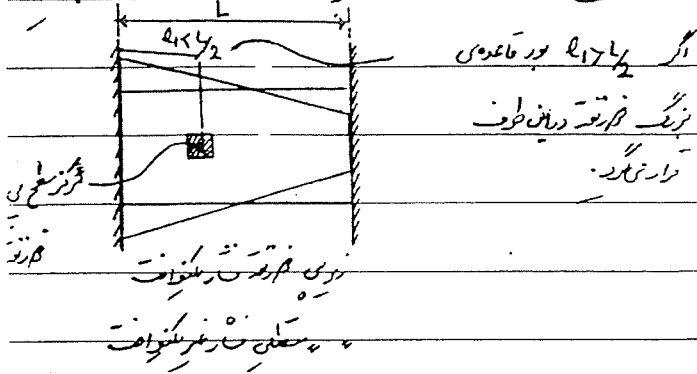 L
l₁<L/2
اگر l₁>L/2 بود قاعده‌ی
بزرگ ذوزنقه در این طرف
قرار می‌گیرد.
مرکز سطح پی
ذوزنقه
زیر پی ذوزنقه فشار یکنواخت
〃 〃 مستطیلی فشار غیر یکنواخت